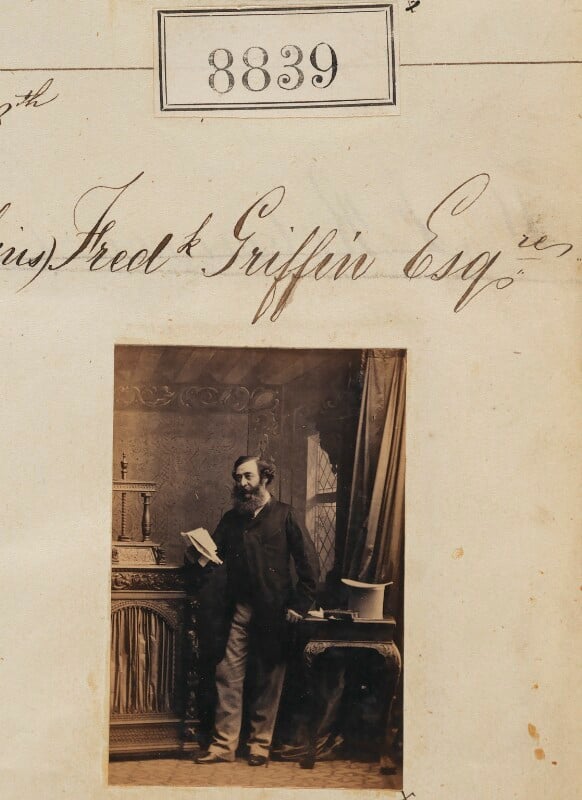 8839
th
Fredk Griffin Esqres